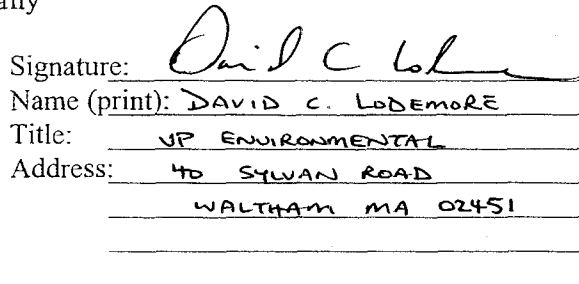 Signature: David C Lod
Name (print): DAVID C. LODEMORE
Title: VP ENVIRONMENTAL
Address: 40 SYLVAN ROAD
WALTHAM MA 02451